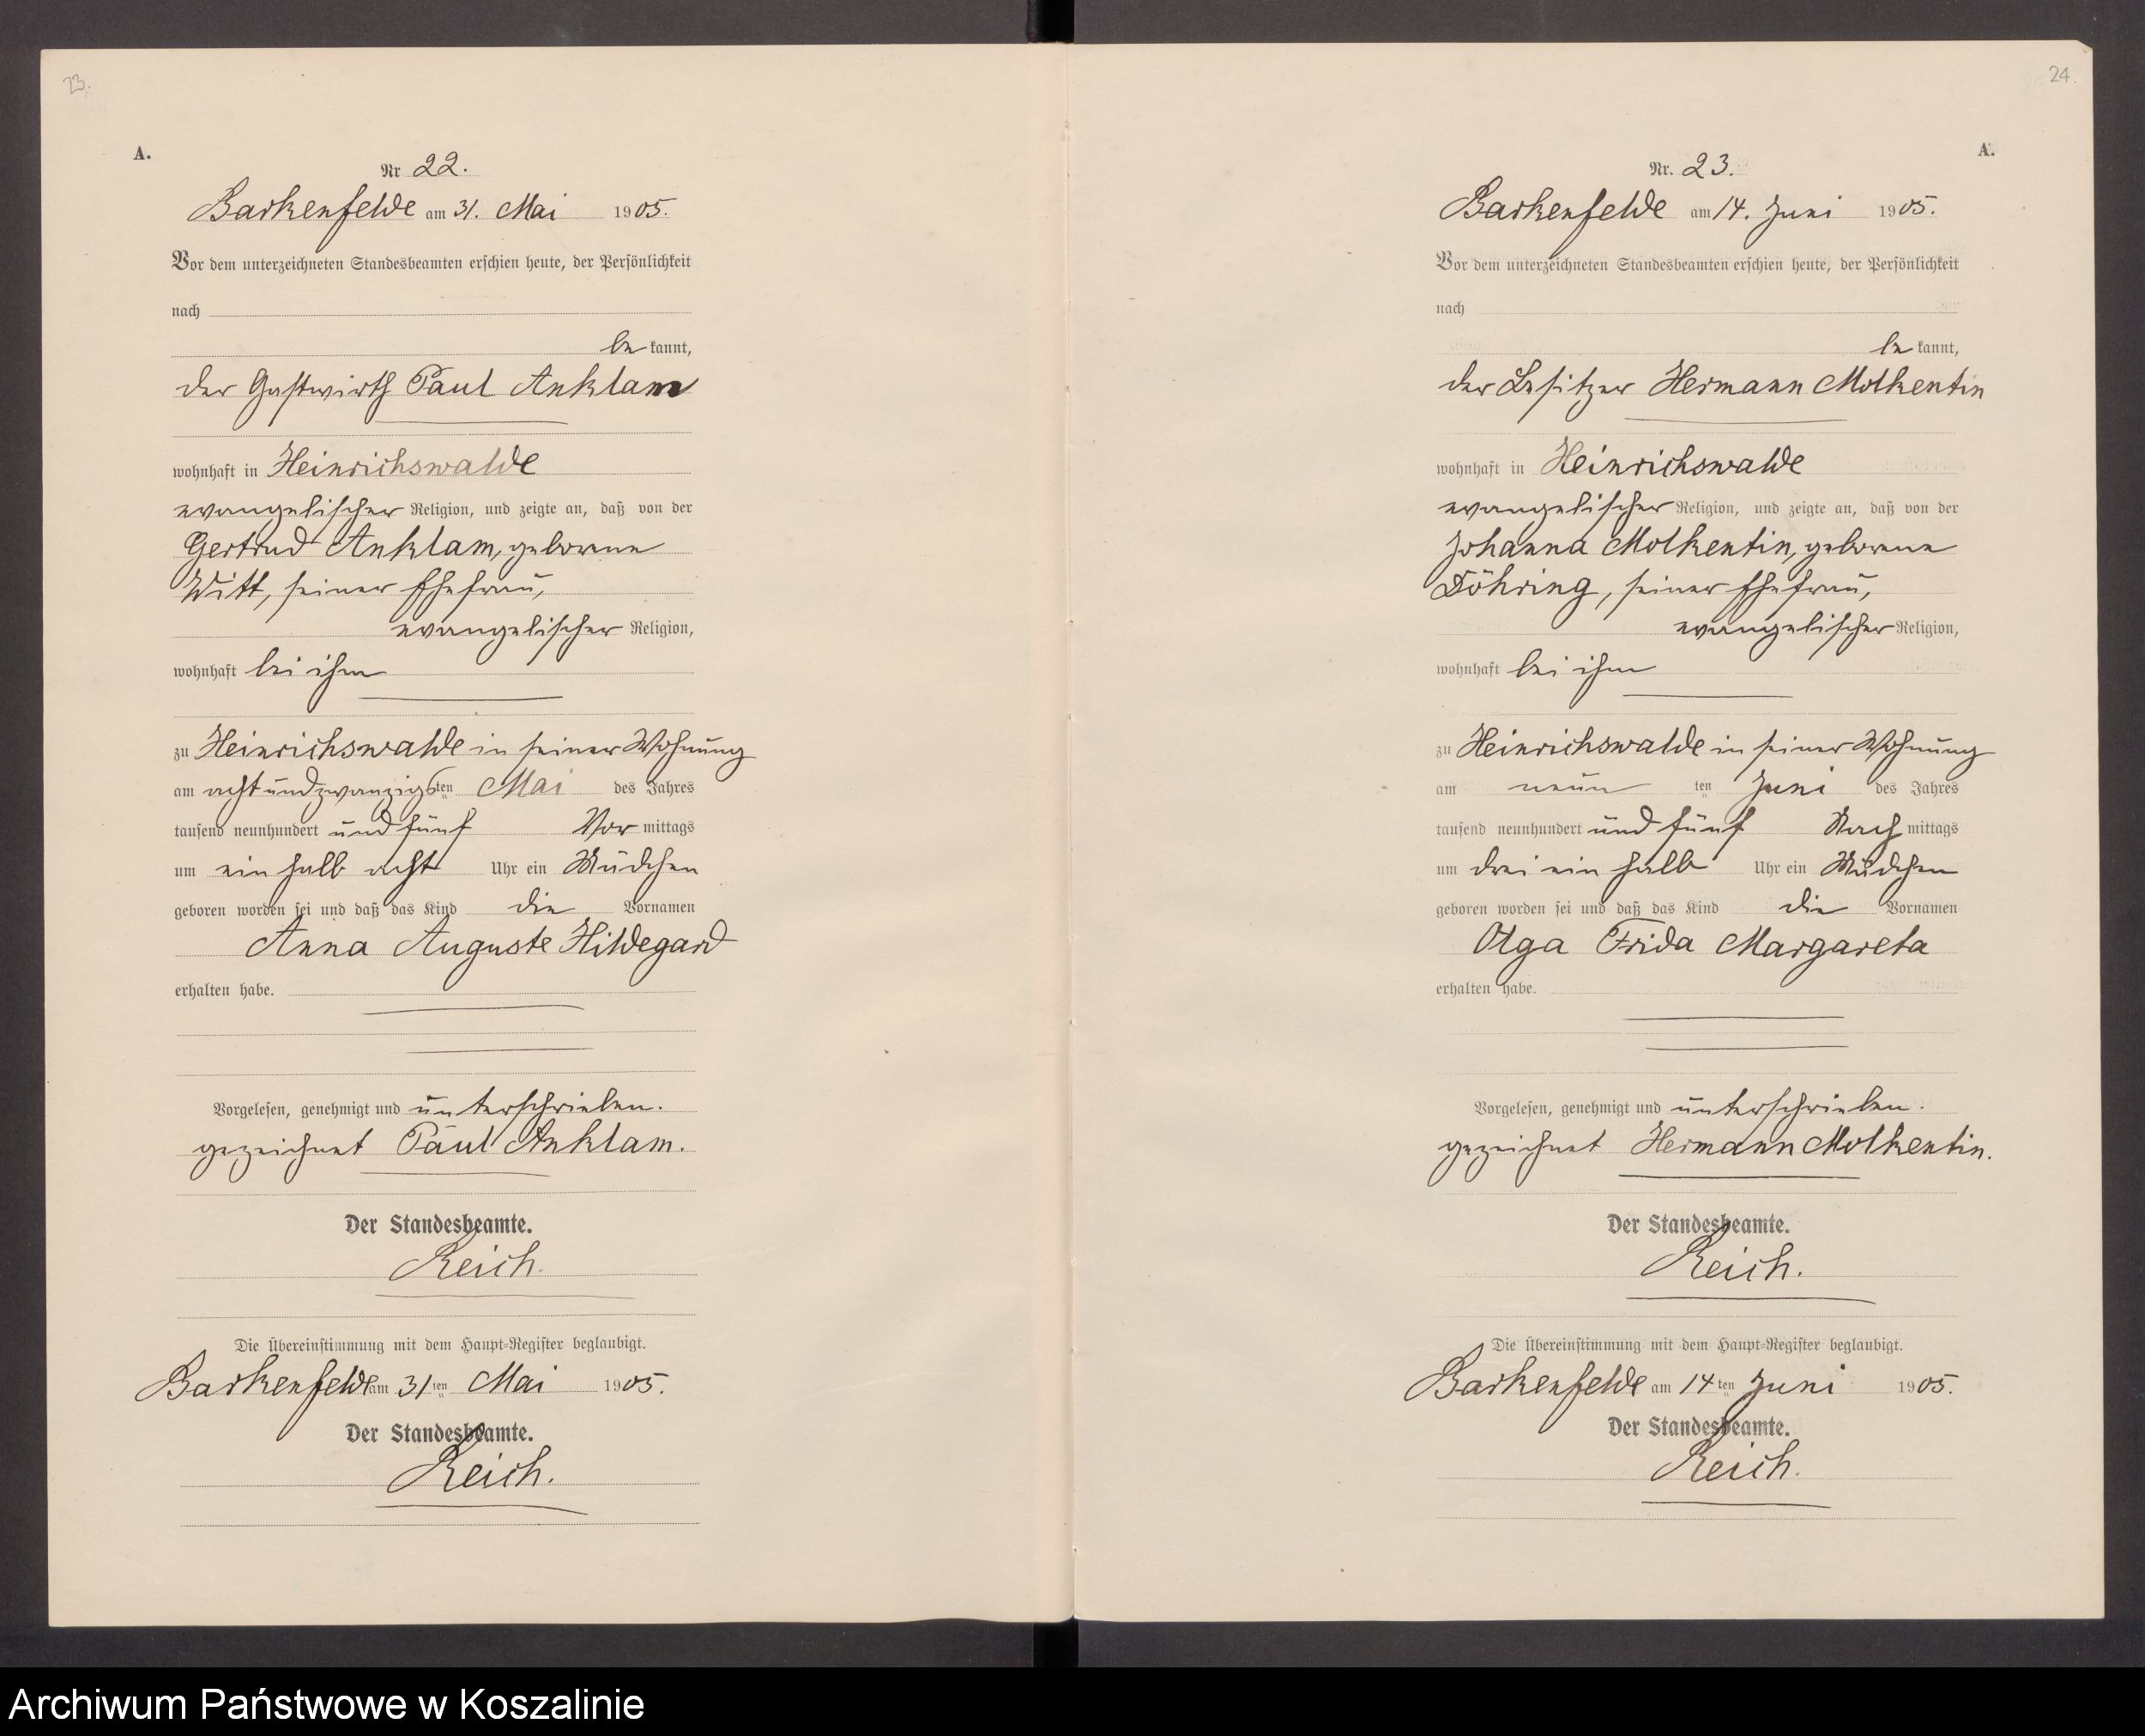 23.
A.
Nr 22.
Barkenfelde am 31. Mai 1905.
Vor dem unterzeichneten Standesbeamten erschien heute, der Persönlichkeit
nach
be kannt,
der Gastwirth Paul Anklam
wohnhaft in Heinrichswalde
evangelischer Religion, und zeigte an, daß von der
Gertrud Anklam, geborene
Witt, seiner Ehefrau,
evangelischer Religion,
wohnhaft bei ihm
zu Heinrichswalde in seiner Wohnung
am achtundzwanzigsten Mai des Jahres
tausend neunhundert und fünf Vor mittags
um ein halb acht Uhr ein Mädchen
geboren worden sei und daß das Kind die Vornamen
Anna Auguste Hildegard
erhalten habe.
Vorgelesen, genehmigt und unterschrieben.
gezeichnet Paul Anklam.
Der Standesbeamte.
Reich.
Die Übereinstimmung mit dem Haupt-Register beglaubigt.
Barkenfelde am 31ten Mai 1905.
Der Standesbeamte.
Reich.
24.
A.
Nr. 23.
Barkenfelde am 14. Juni 1905.
Vor dem unterzeichneten Standesbeamten erschien heute, der Persönlichkeit
nach
be kannt,
der Besitzer Hermann Molkentin
wohnhaft in Heinrichswalde
evangelischer Religion, und zeigte an, daß von der
Johanna Molkentin, geborene
Döhring, seiner Ehefrau,
evangelischer Religion,
wohnhaft bei ihm
zu Heinrichswalde in seiner Wohnung
am neun ten Juni des Jahres
tausend neunhundert und fünf Nach mittags
um drei ein halb Uhr ein Mädchen
geboren worden sei und daß das Kind die Vornamen
Olga Frida Margareta
erhalten habe.
Vorgelesen, genehmigt und unterschrieben.
gezeichnet Hermann Molkentin.
Der Standesbeamte.
Reich.
Die Übereinstimmung mit dem Haupt-Register beglaubigt.
Barkenfelde am 14ten Juni 1905.
Der Standesbeamte.
Reich.
Archiwum Państwowe w Koszalinie